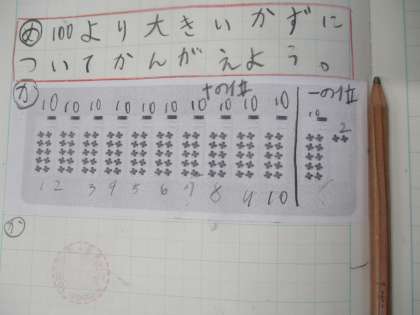 め 100より大きいかずに
ついてかんがえよう。
か
十の位 一の位
10 10 10 10 10 10 10 10 10 10 10 2
1 2 3 4 5 6 7 8 9 10
か